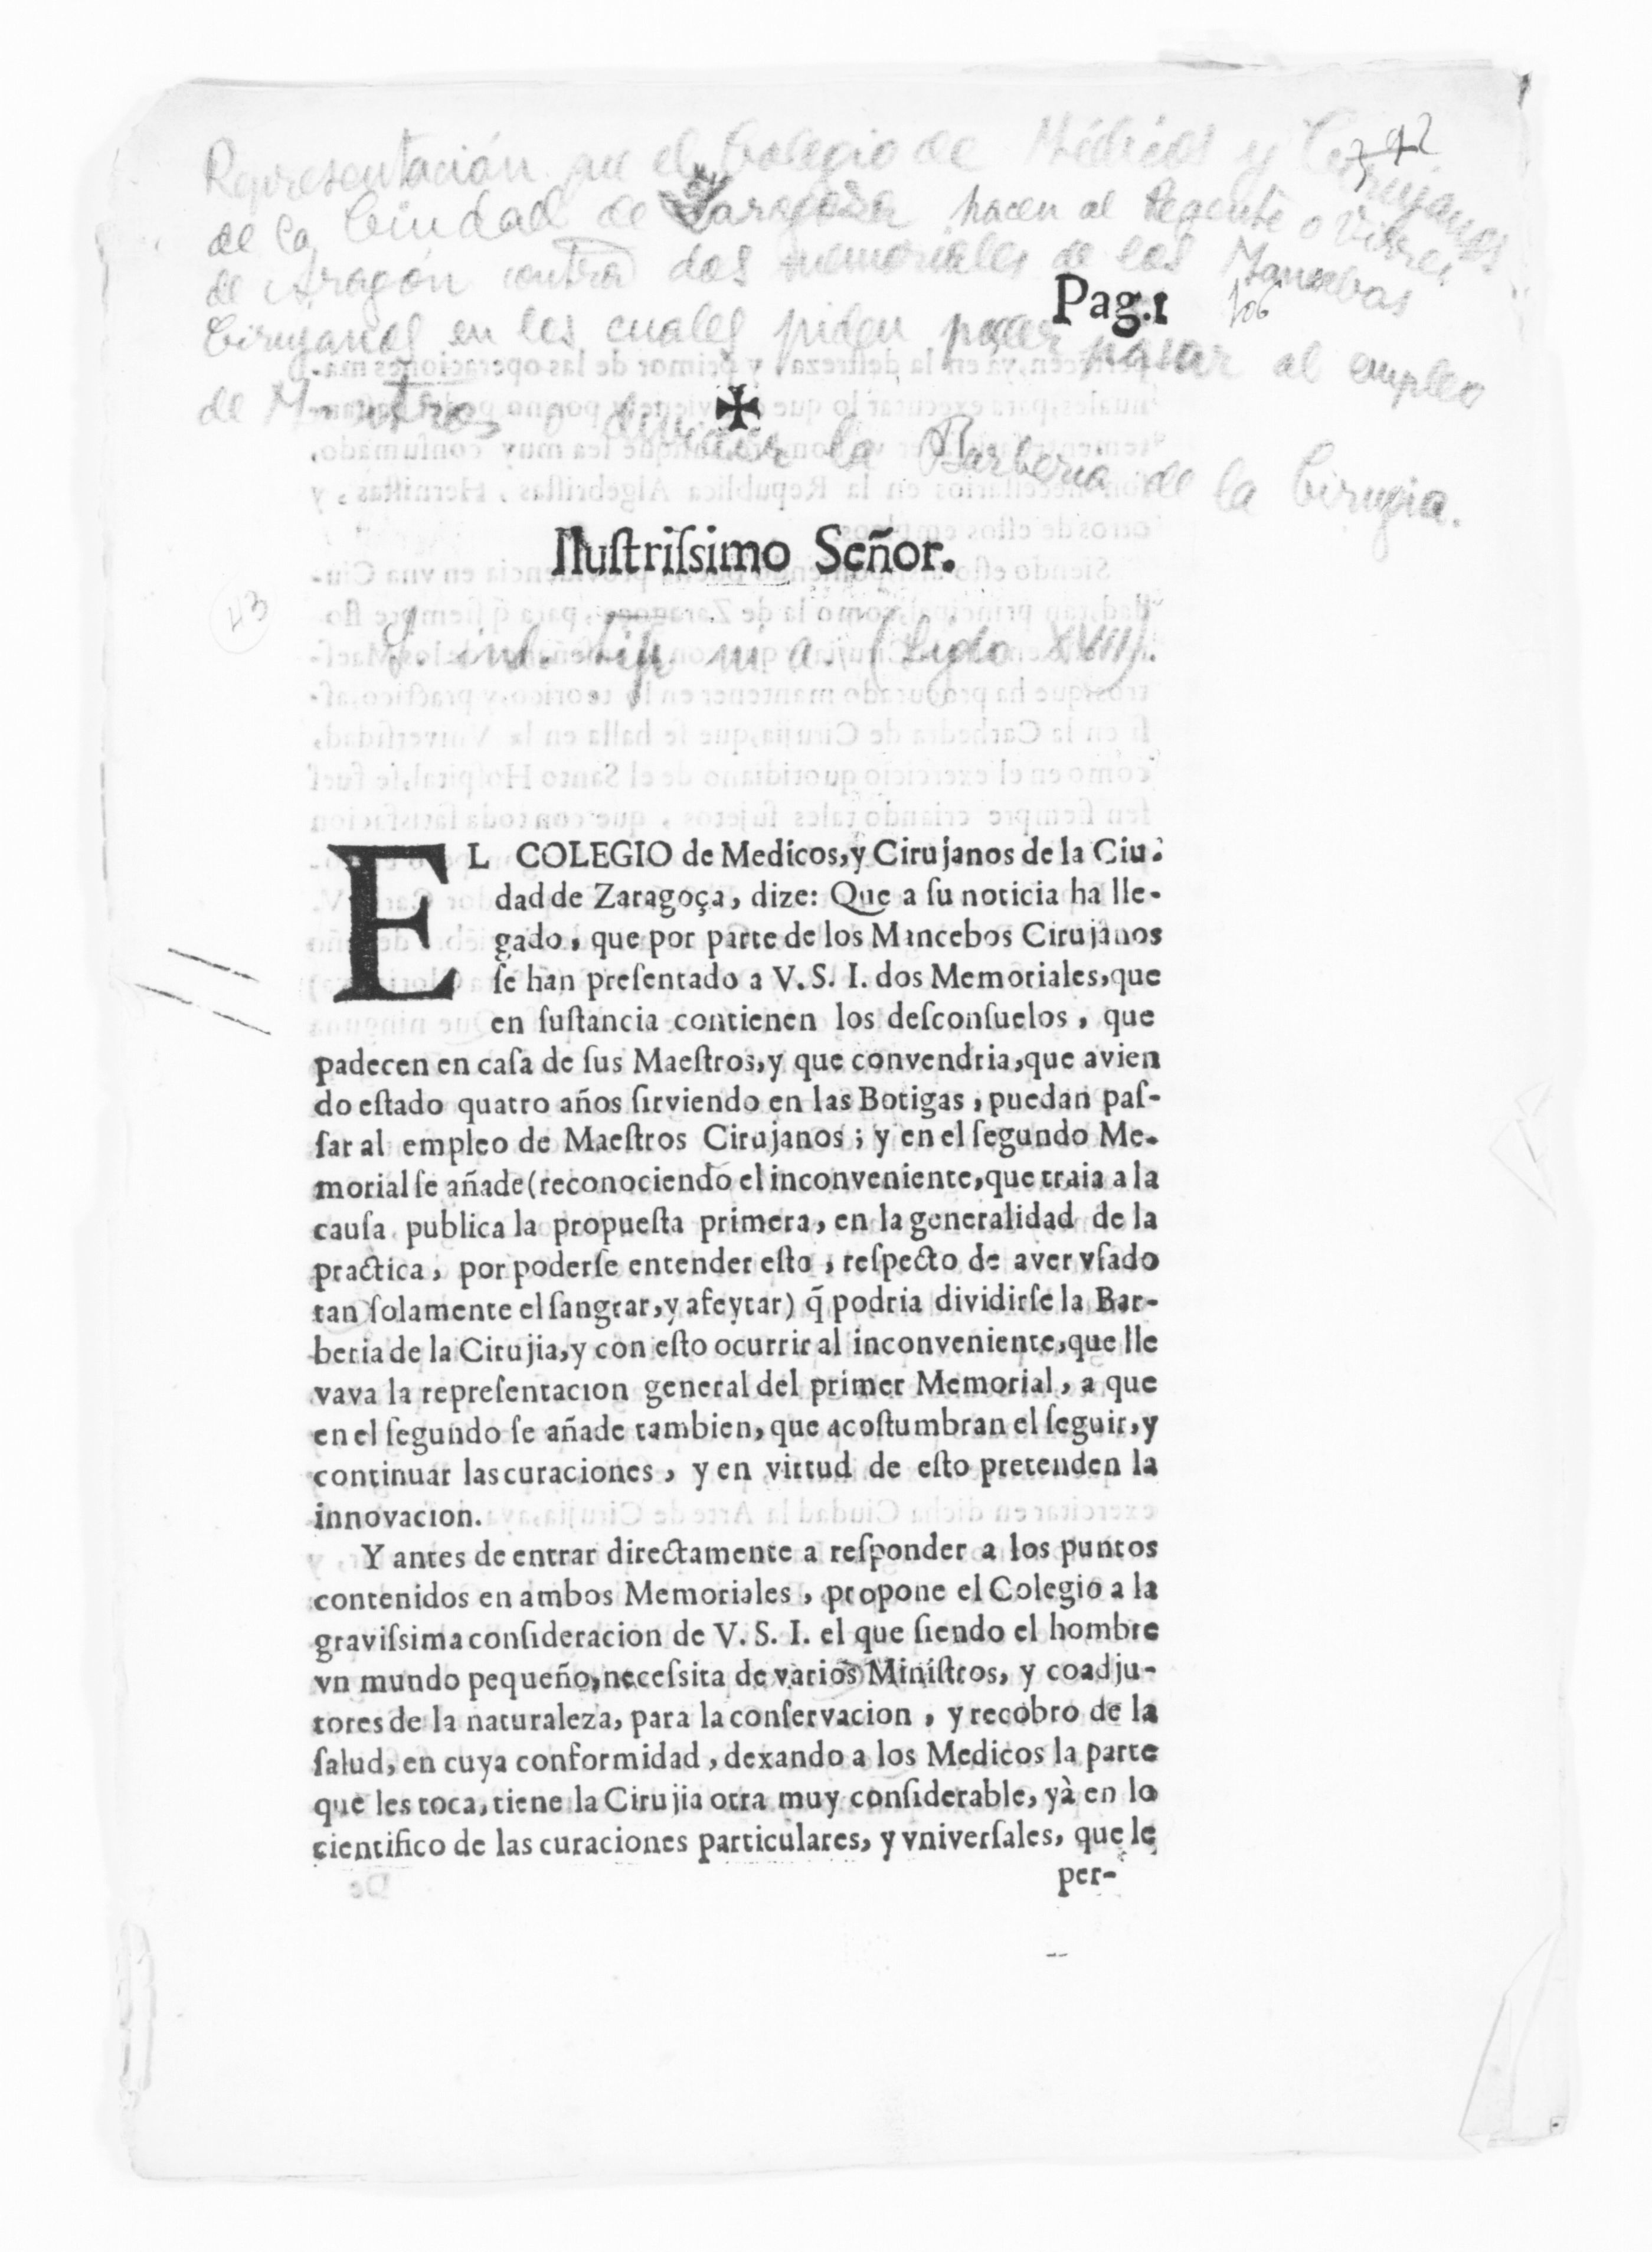 Representación que el Colegio de Médicos y Cirujanos
de la Ciudad de Zaragoza hacen al Regente o Virrei
de Aragón contra dos memoriales de los Mancebos
Cirujanos en los cuales piden poder pasar al empleo
de Maestros o dividir la Barberia de la Cirugia.
792
106
Pag.1
✠
Iluſtriſsimo Señor.
43
S. ind. tip. ni a. (Siglo XVII).
EL COLEGIO de Medicos, y Cirujanos de la Ciu-
dad de Zaragoça, dize: Que a ſu noticia ha lle-
gado, que por parte de los Mancebos Cirujanos
ſe han preſentado a V. S. I. dos Memoriales, que
en ſuſtancia contienen los deſconſuelos, que
padecen en caſa de ſus Maeſtros, y que convendria, que avien
do eſtado quatro años ſirviendo en las Botigas, puedan paſ-
ſar al empleo de Maeſtros Cirujanos; y en el ſegundo Me-
morial ſe añade (reconociendo el inconveniente, que traia a la
cauſa publica la propueſta primera, en la generalidad de la
practica, por poderſe entender eſto, reſpecto de aver vſado
tan ſolamente el ſangrar, y afeytar) q̃ podria dividirſe la Bar-
beria de la Cirujia, y con eſto ocurrir al inconveniente, que lle
vava la repreſentacion general del primer Memorial, a que
en el ſegundo ſe añade tambien, que acoſtumbran el ſeguir, y
continuar las curaciones, y en virtud de eſto pretenden la
innovacion.
Y antes de entrar directamente a reſponder a los puntos
contenidos en ambos Memoriales, propone el Colegio a la
graviſsima conſideracion de V. S. I. el que ſiendo el hombre
vn mundo pequeño, neceſsita de varios Miniſtros, y coadju-
tores de la naturaleza, para la conſervacion, y recobro de la
ſalud, en cuya conformidad, dexando a los Medicos la parte
que les toca, tiene la Cirujia otra muy conſiderable, yà en lo
cientifico de las curaciones particulares, y vniverſales, que le
per-